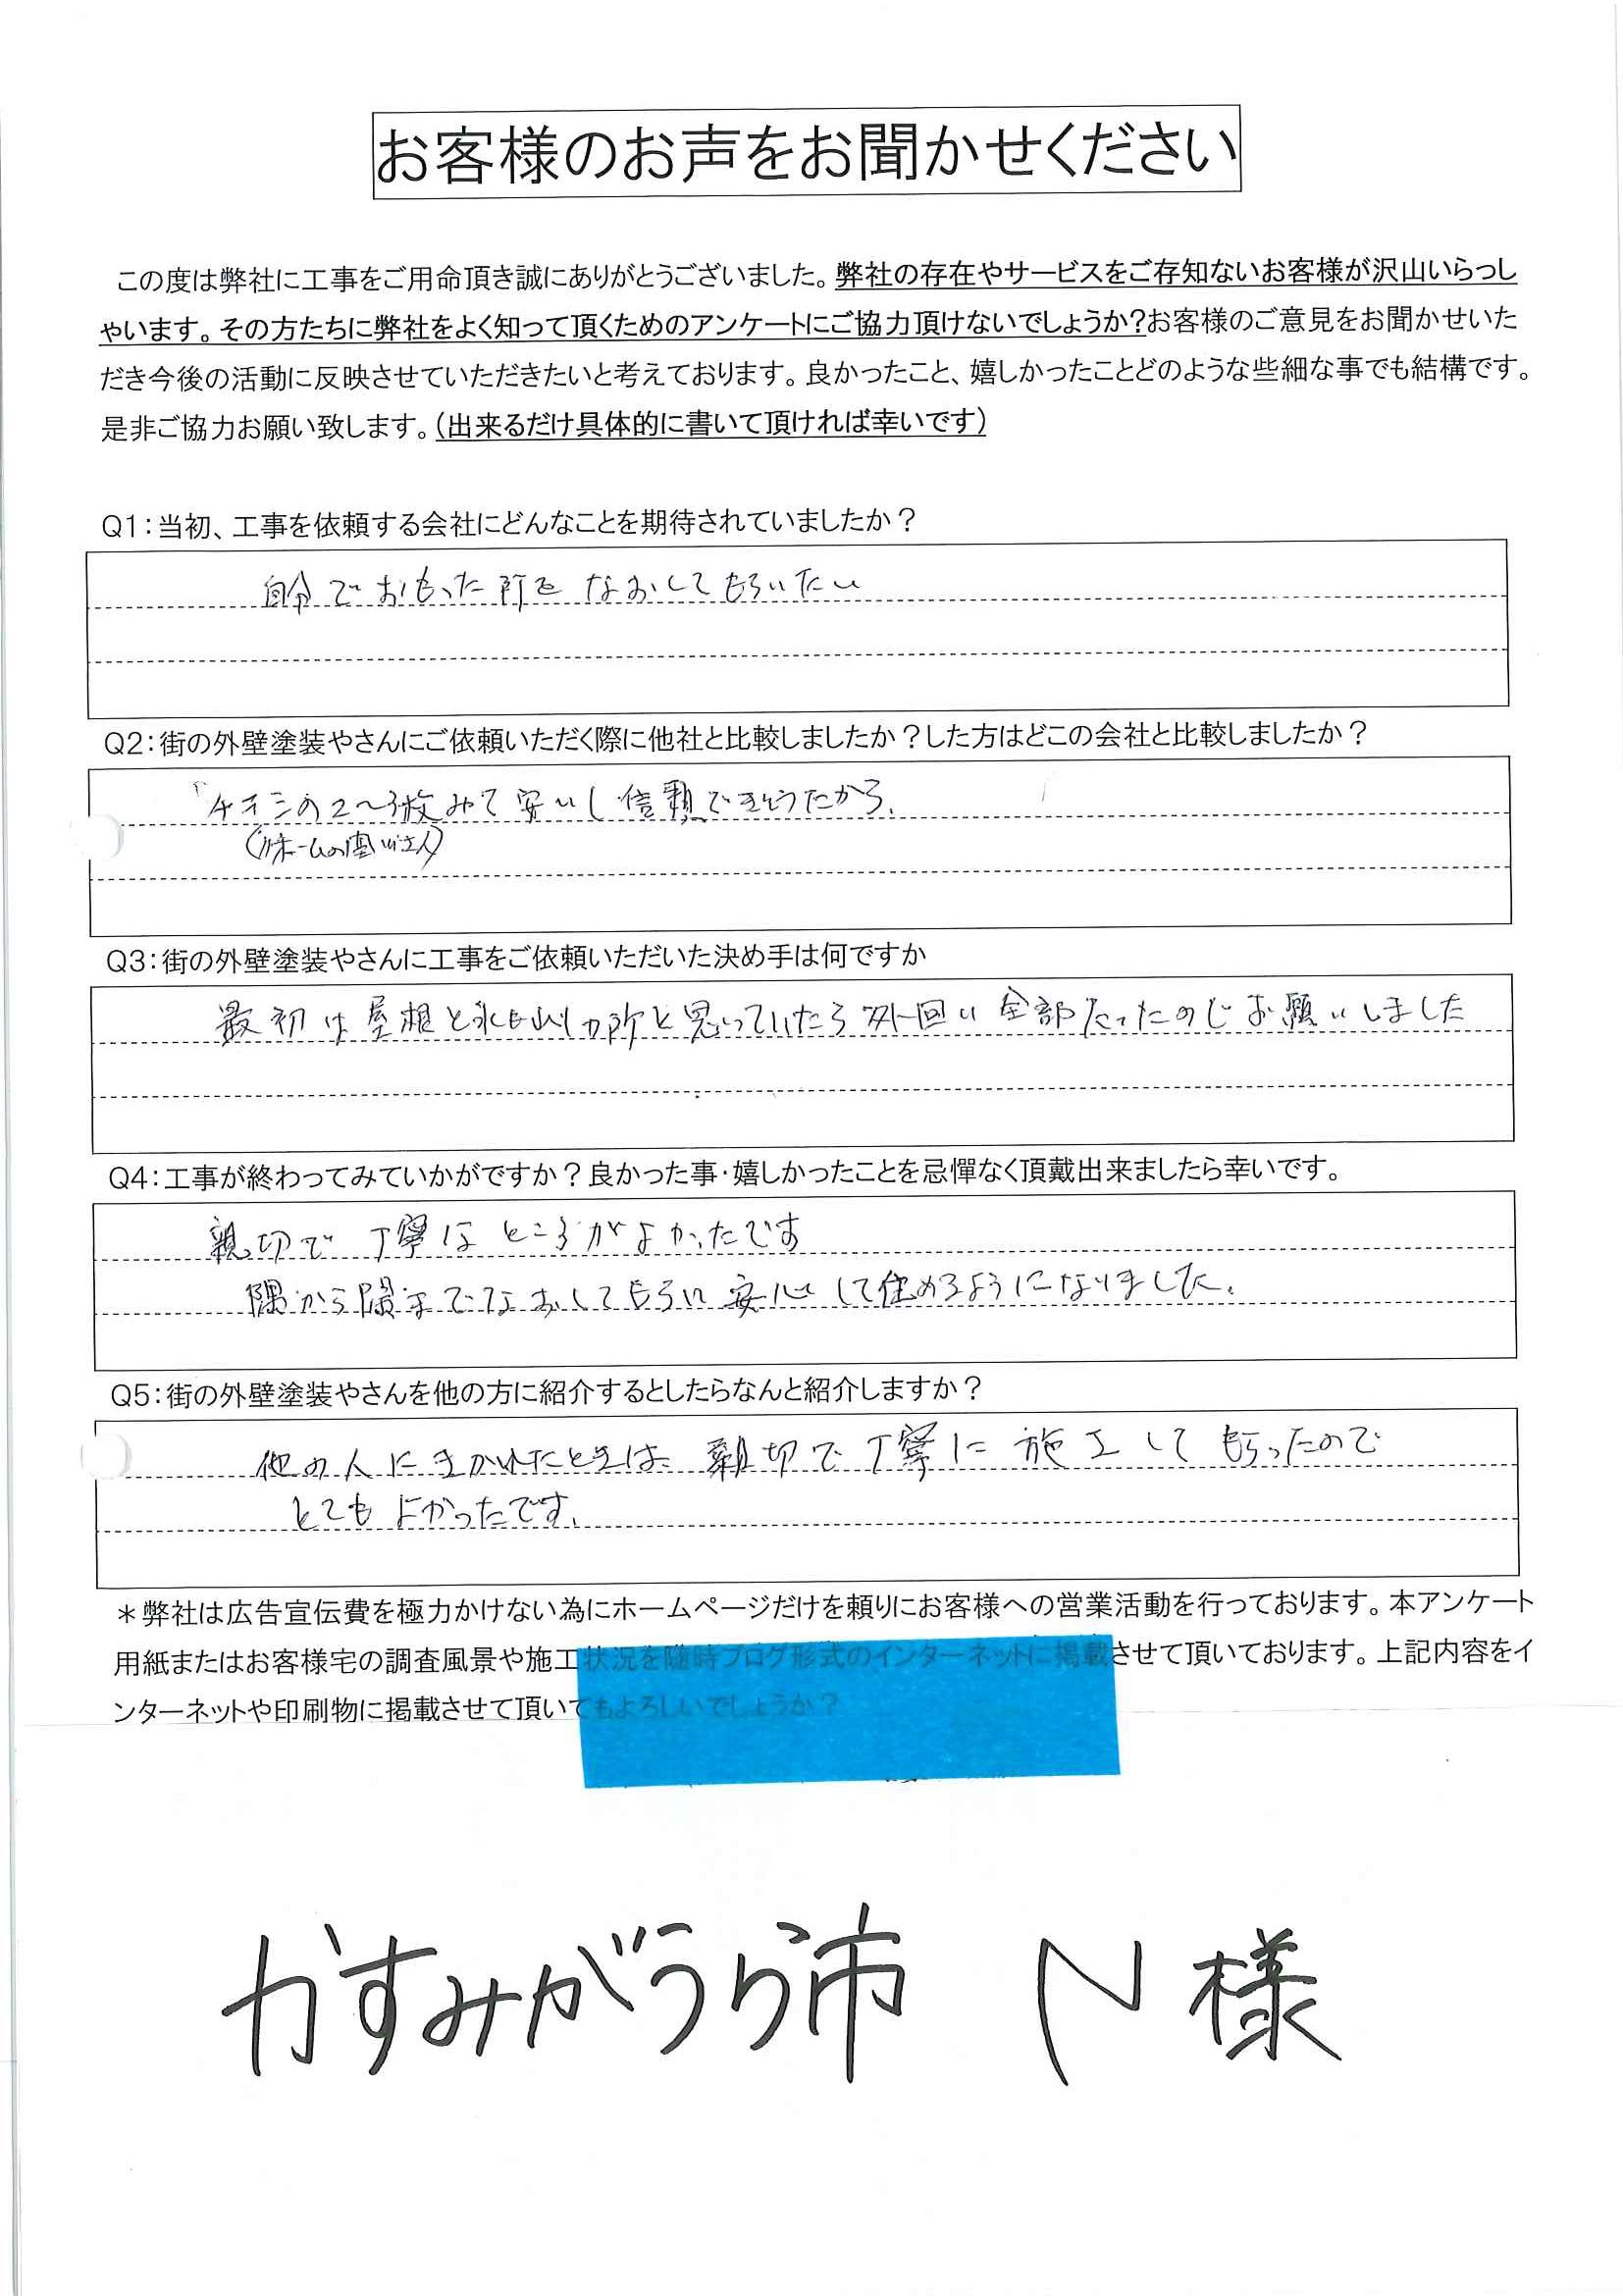 お客様のお声をお聞かせください
この度は弊社に工事をご用命頂き誠にありがとうございました。弊社の存在やサービスをご存知ないお客様が沢山いらっし
ゃいます。その方たちに弊社をよく知って頂くためのアンケートにご協力頂けないでしょうか?お客様のご意見をお聞かせいた
だき今後の活動に反映させていただきたいと考えております。良かったこと、嬉しかったことどのような些細な事でも結構です。
是非ご協力お願い致します。(出来るだけ具体的に書いて頂ければ幸いです)
Q1:当初、工事を依頼する会社にどんなことを期待されていましたか?
自分でおもった所をなおしてもらいたい
Q2:街の外壁塗装やさんにご依頼いただく際に他社と比較しましたか?した方はどこの会社と比較しましたか?
チラシの2〜3枚みて安いし信頼できそうだから、
Q3:街の外壁塗装やさんに工事をご依頼いただいた決め手は何ですか
最初は屋根と 所と思っていたら外回り全部だったのでお願いしました
Q4:工事が終わってみていかがですか?良かった事・嬉しかったことを忌憚なく頂戴出来ましたら幸いです。
親切で丁寧なところがよかったです
隅から隅までなおしてもらい安心して住めるようになりました。
Q5:街の外壁塗装やさんを他の方に紹介するとしたらなんと紹介しますか?
他の人にきかれたときは、親切で丁寧に施工してもらったので
とてもよかったです。
*弊社は広告宣伝費を極力かけない為にホームページだけを頼りにお客様への営業活動を行っております。本アンケート
用紙またはお客様宅の調査風景や施工状況を随時ブログ形式のインターネットに掲載させて頂いております。上記内容をイ
ンターネットや印刷物に掲載させて頂いてもよろしいでしょうか?
かすみがうら市 N様